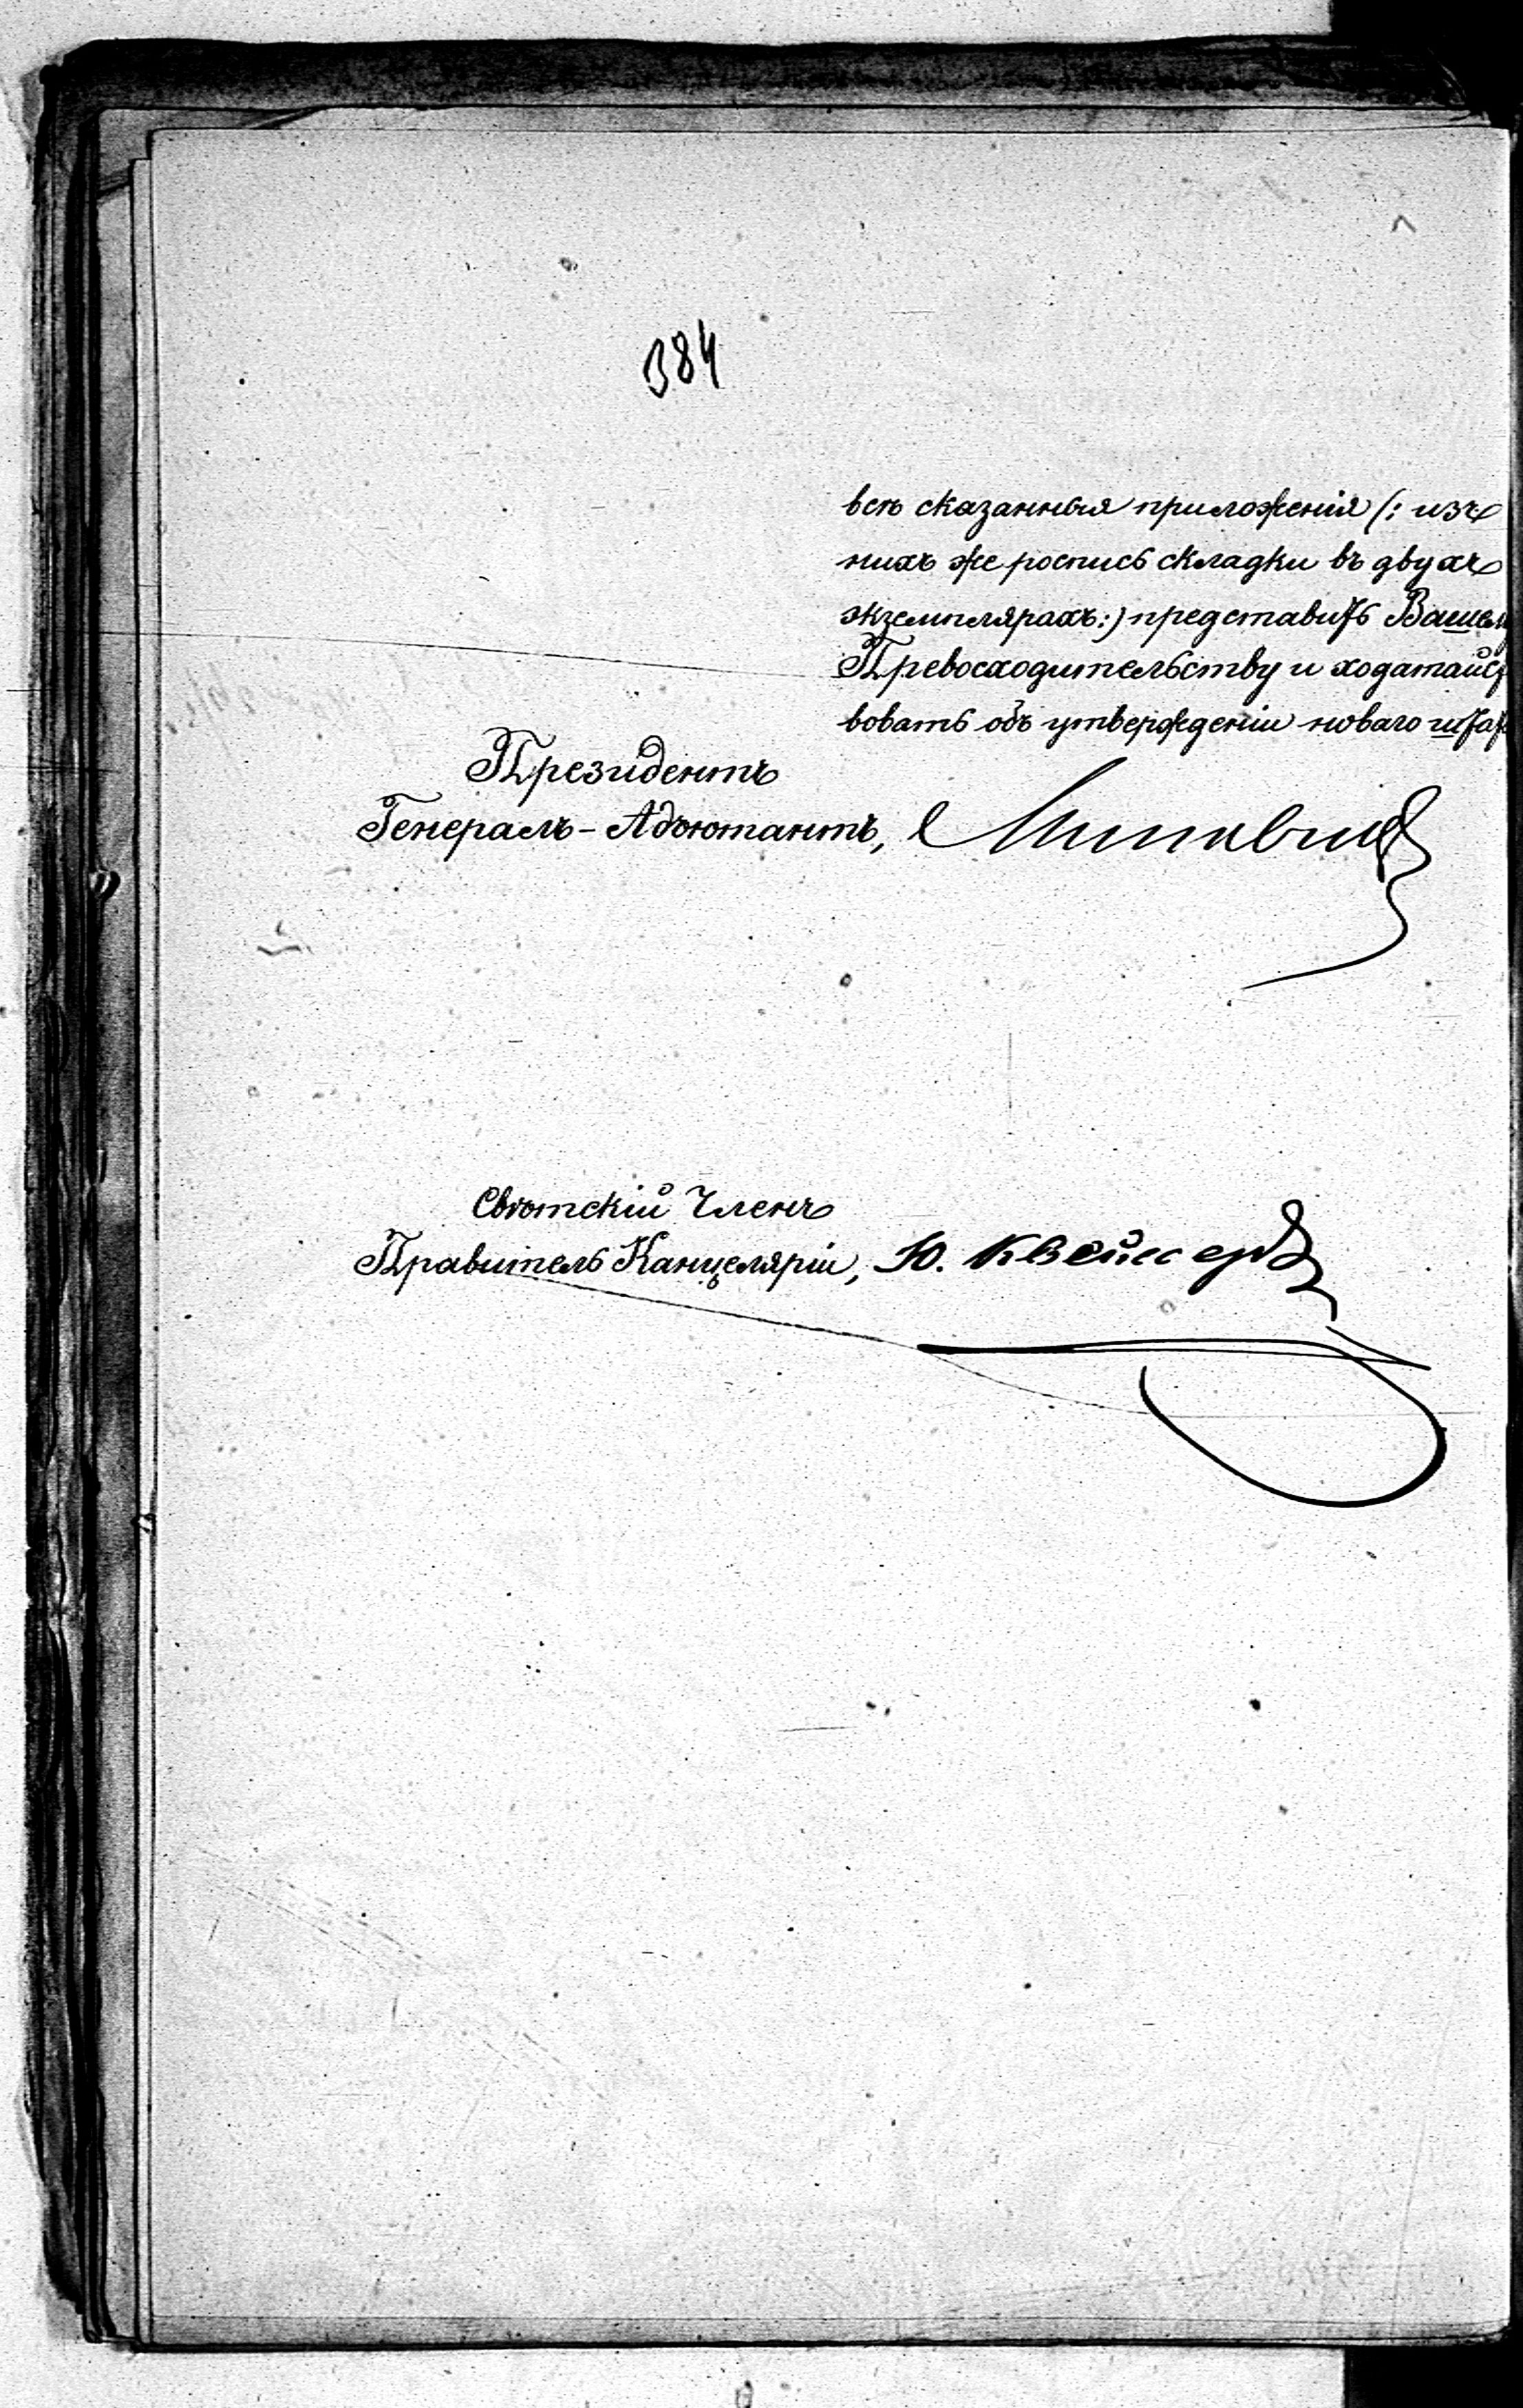 384
всѣ сказанныя приложенія (: изъ
нихъ же роспись складки въ двухъ
экземплярахъ:) представить Вашем
Превосходительству и ходатайст
вовать объ утвержденіи новаго штат
Президентъ
Генералъ-Адъютантъ, Минквицъ
Свѣтскій Членъ
Правитель Канцеляріи, Ю.